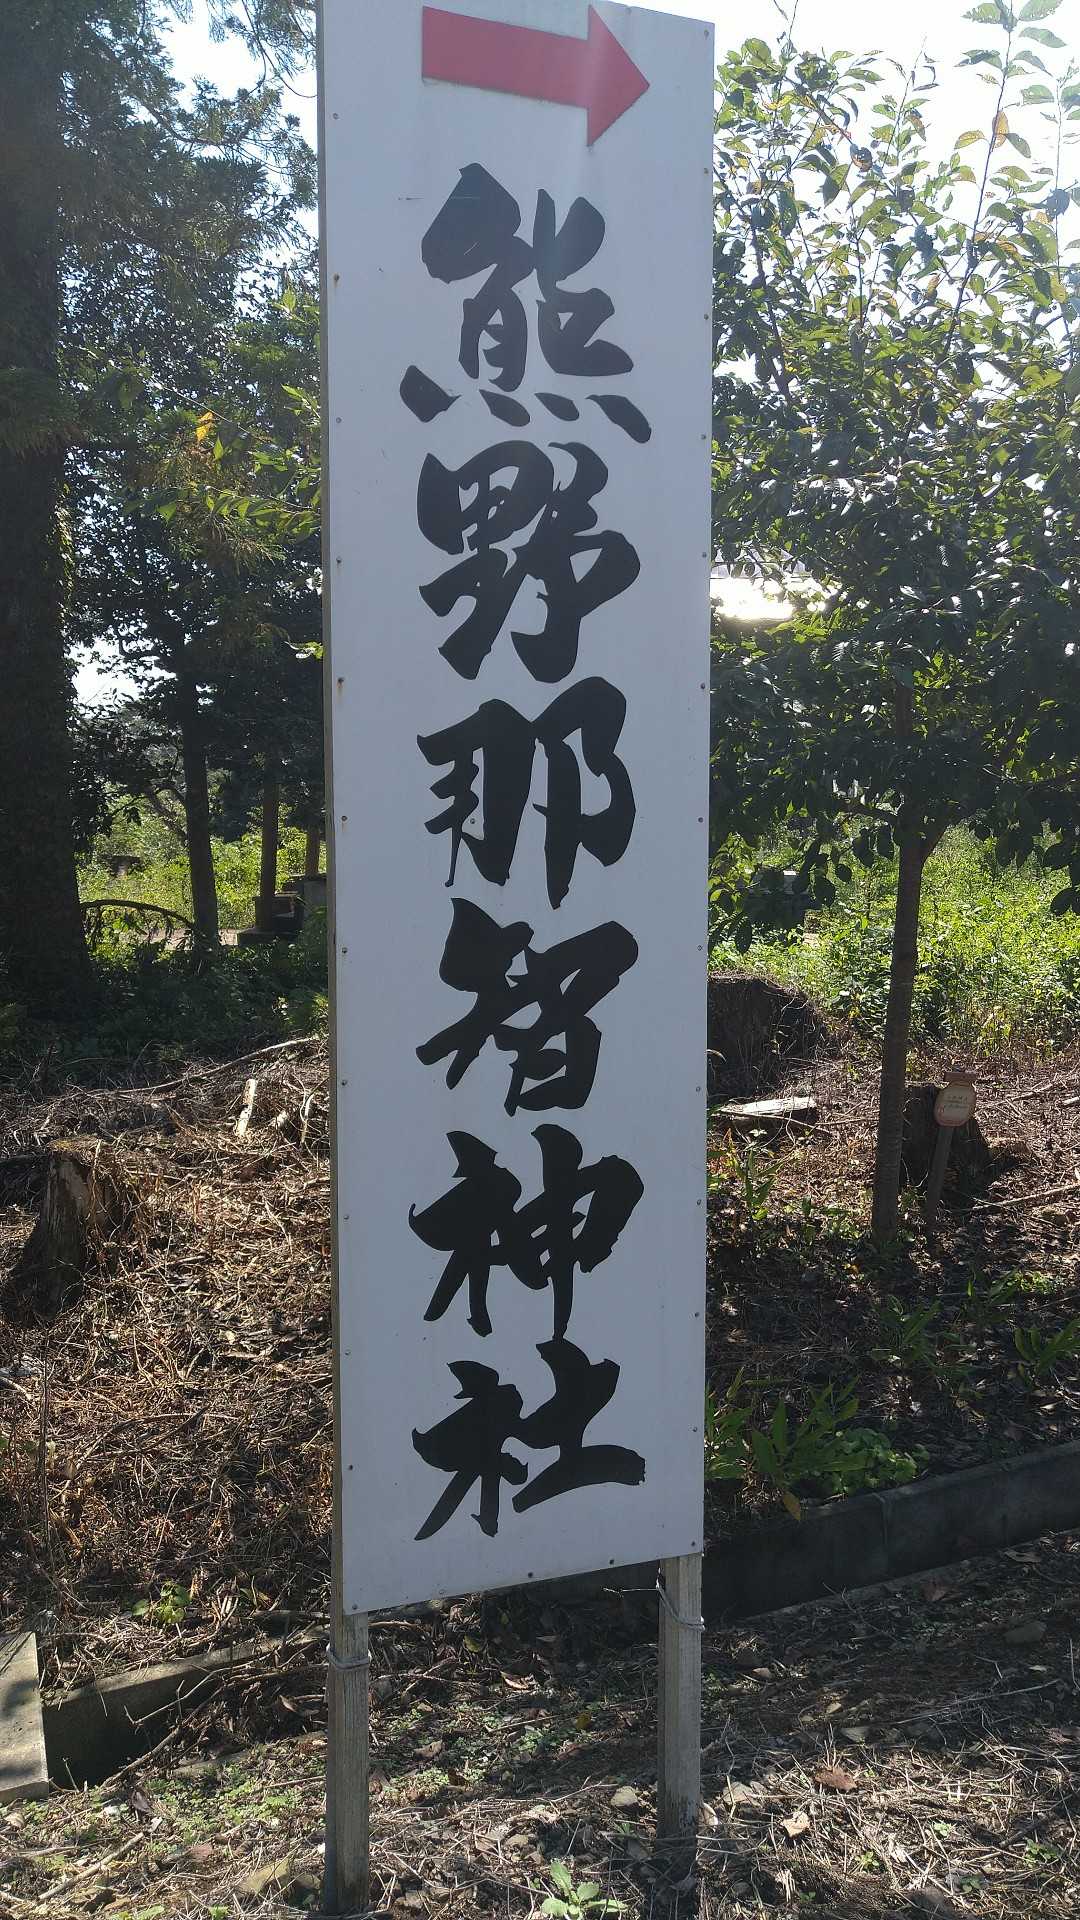 熊野那智神社